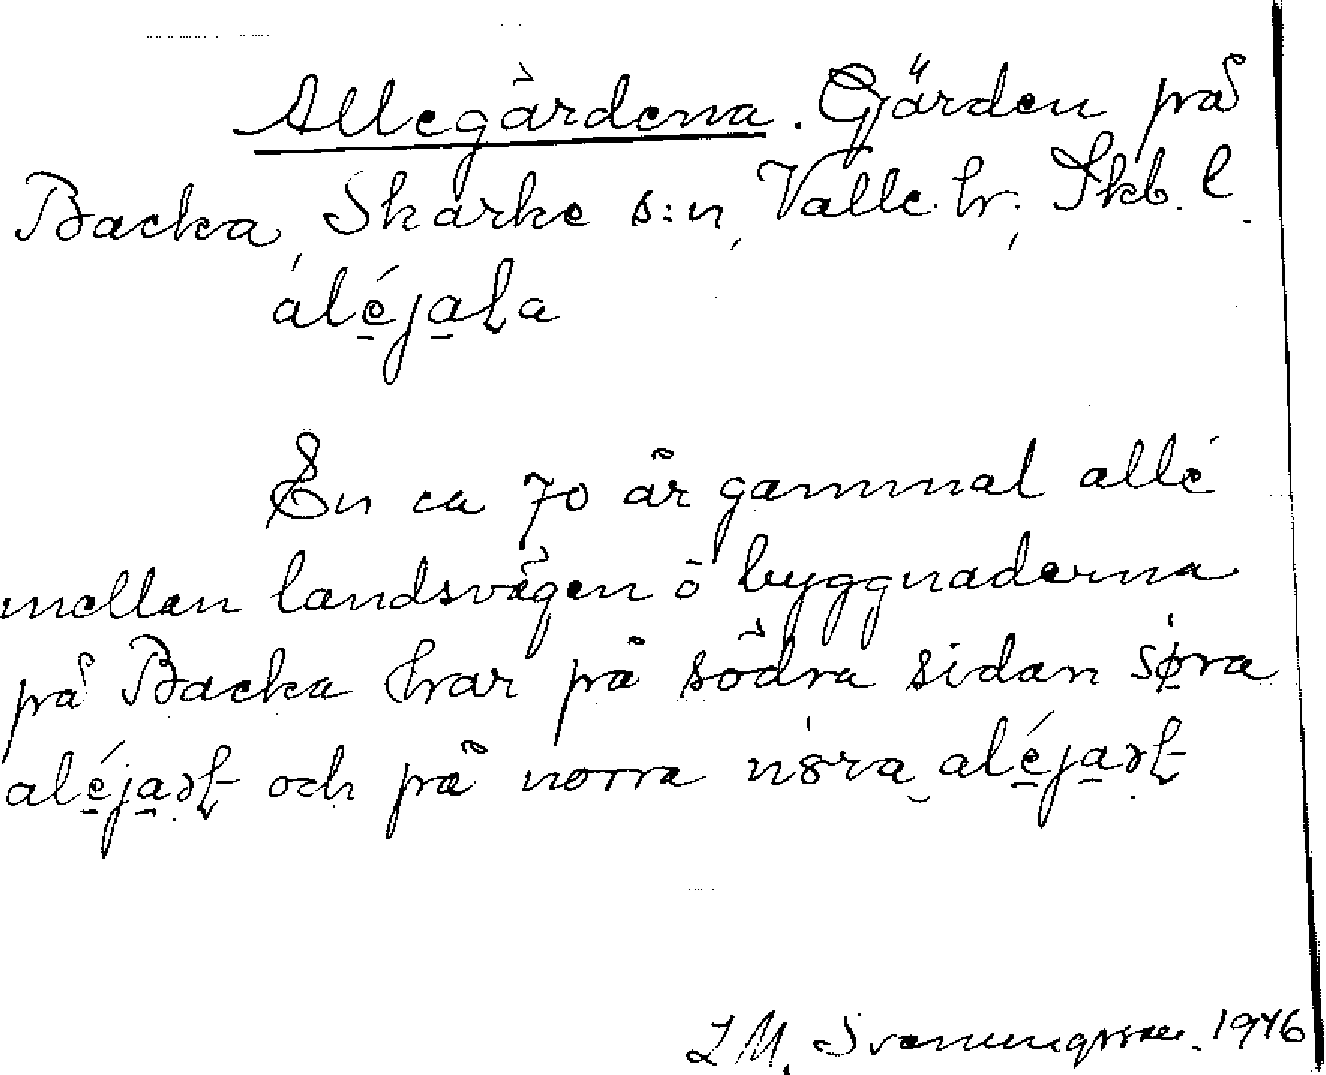 Allegärdena. Gärden på
Backa, Skärke s:n, Valle hr; Skb. l.
aléjaɫa
En ca 70 år gammal allé
mellan landsvägen o byggnaderna
på Backa har på södra sidan søra
aléjaɜɫ och på norra nɵra aléjaɜɫ
L M. Svanungsson. 1946